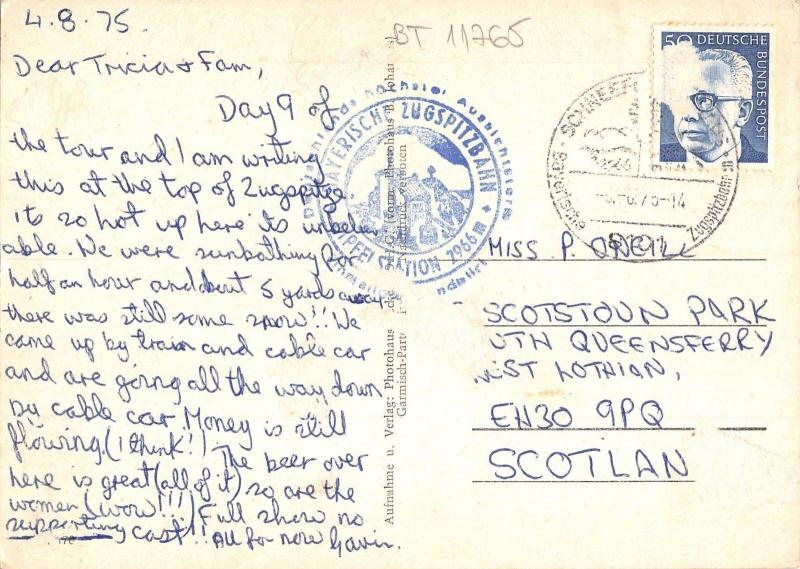 4.8.75.
BT 11765
Dear Tricia & Fam,
Day 9 of
the tour and I am writing
this at the top of Zugspitze.
its so hot up here its unbeliev-
able. We were sunbathing for
half an hour and about 5 yards away
there was still some snow!! We
came up by train and cable car
and are going all the way down
by cable car. Money is still
flowing (i think!) The beer over
here is great (all of it) so are the
women (wow!!!) Full show no
supporting cast!! All for now Gavin.
BAYERISCHE ZUGSPITZBAHN
GIPFELSTATION 2966 m
Aufnahme u. Verlag: Photohaus
Garmisch-Part
(vorm. Photohaus B. Johannes)
verboten
50 DEUTSCHE
BUNDESPOST
SCHNEEF
Bayerische
Zugspitzbahn
MISS P. O'NEILL
SCOTSTOUN PARK
UTH QUEENSFERRY
WEST LOTHIAN,
EH30 9PQ
SCOTLAN